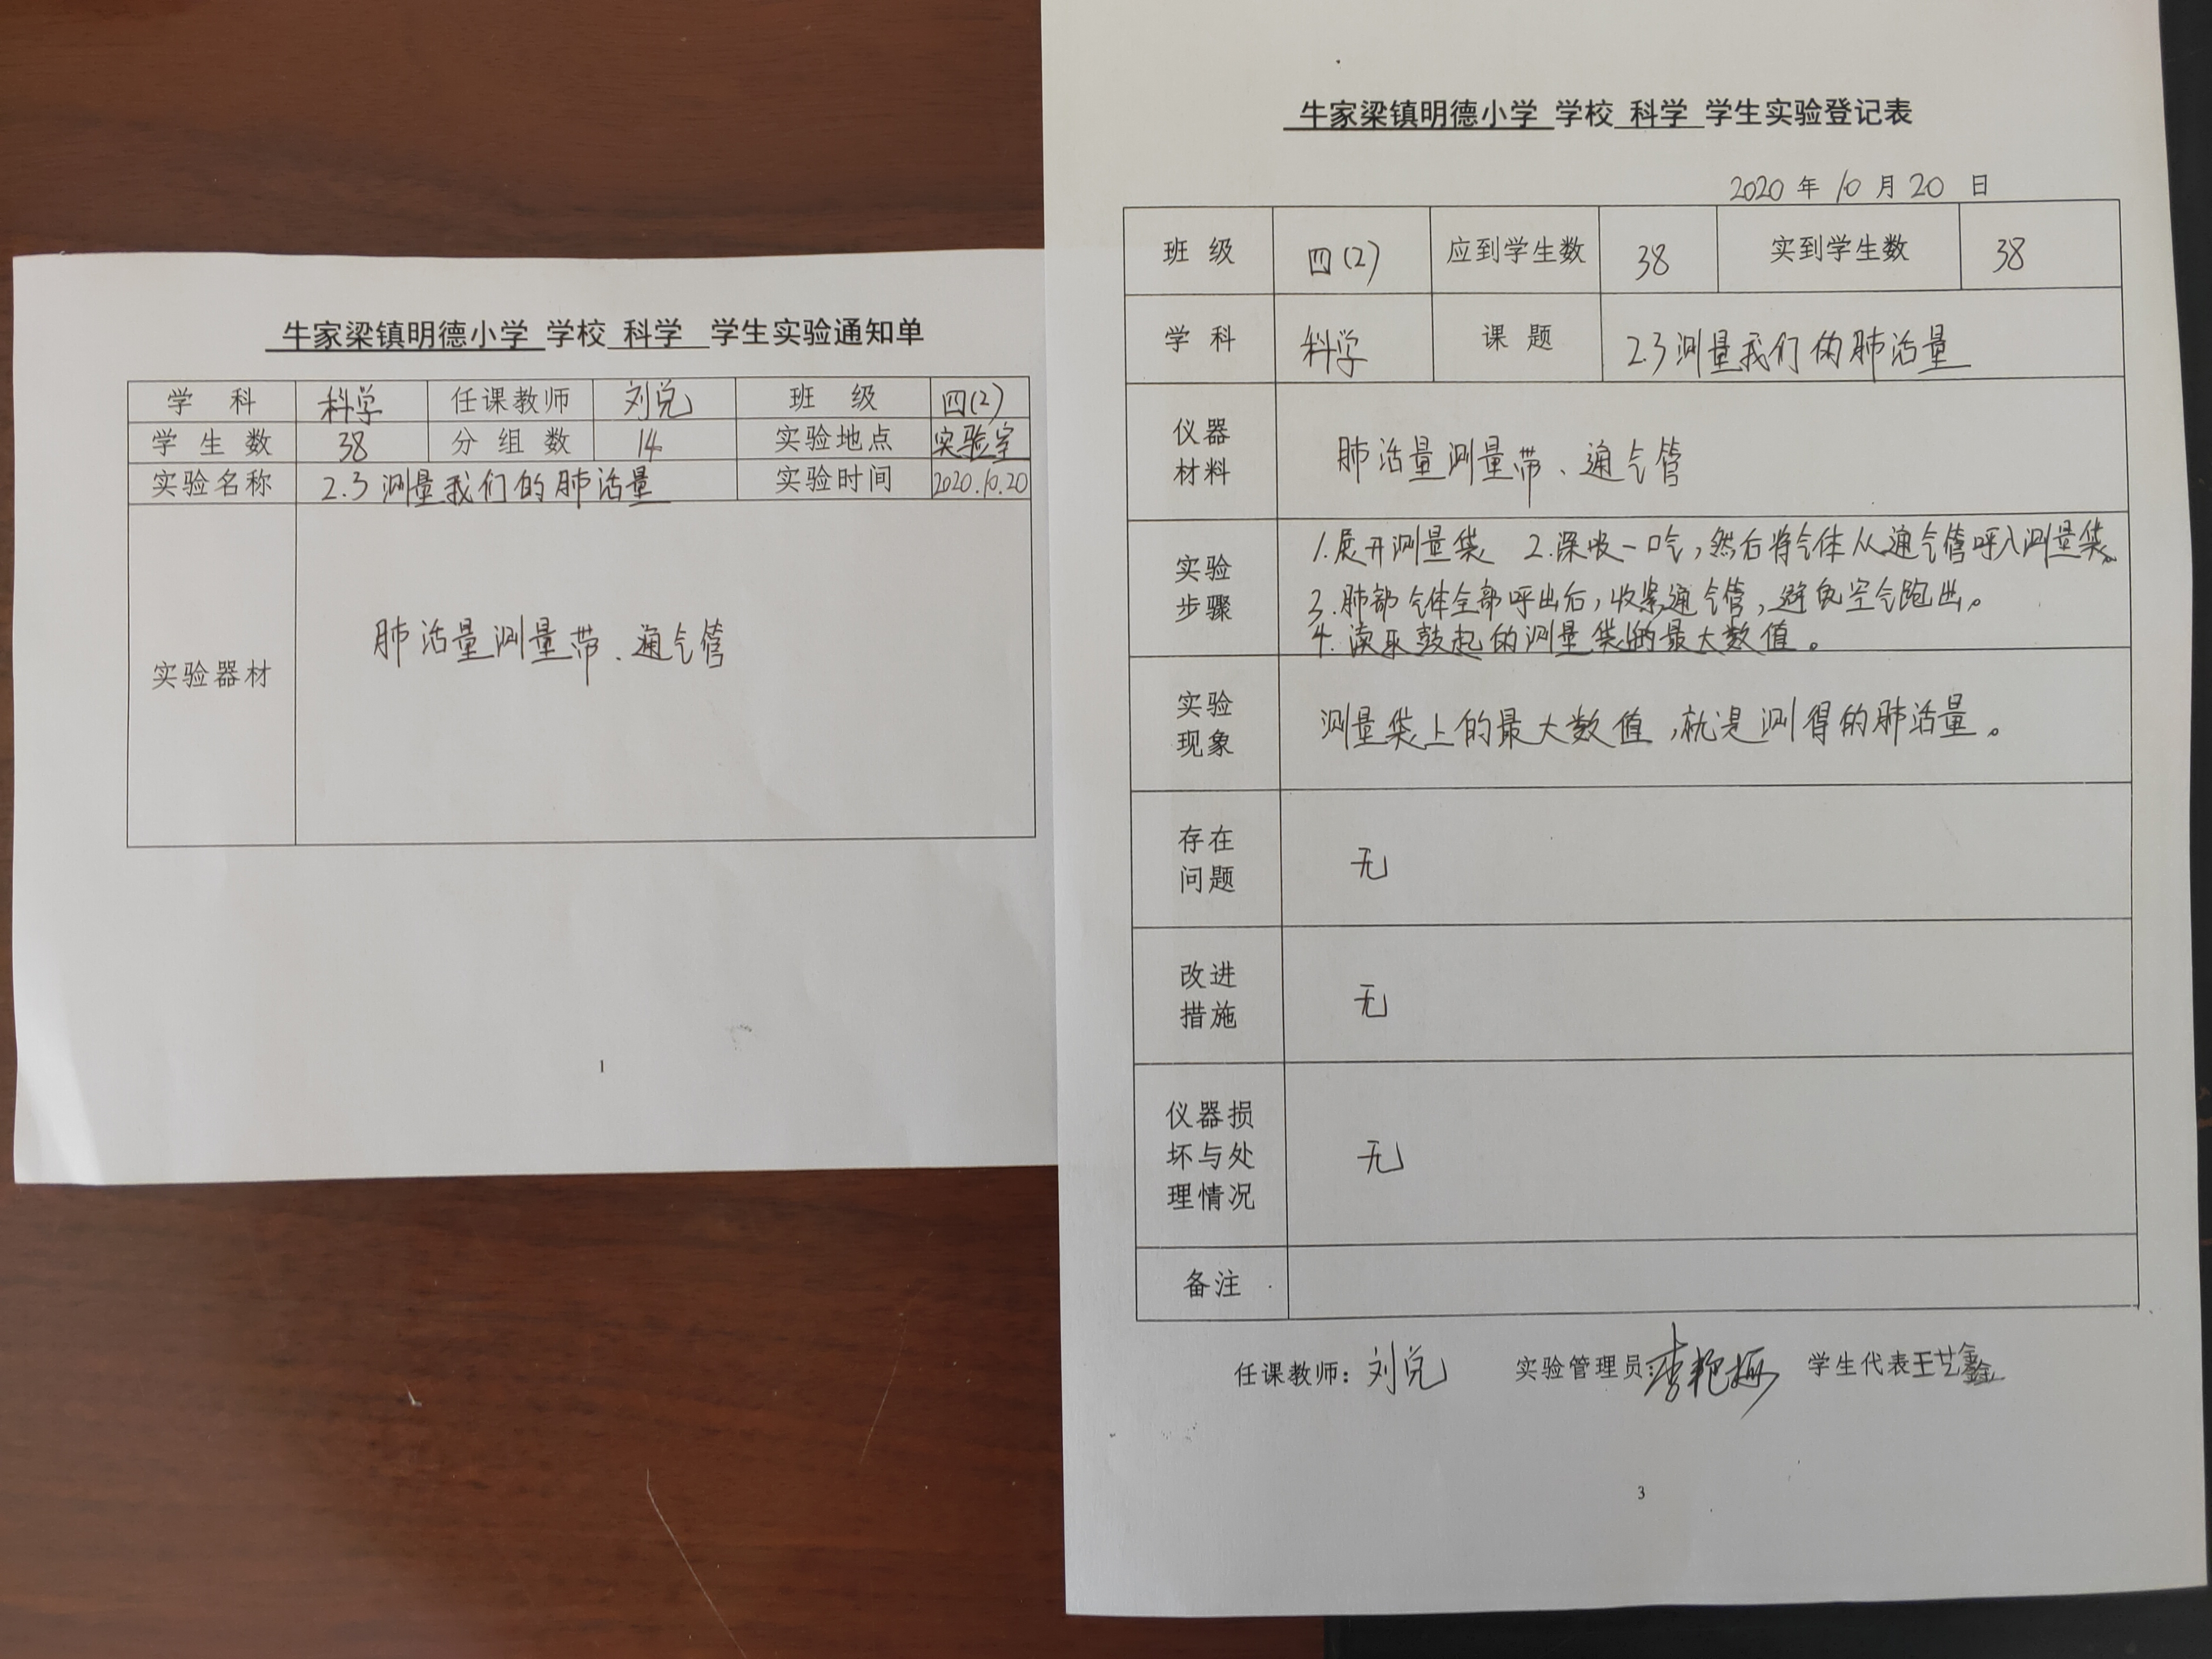 牛家梁镇明德小学 学校 科学 学生实验通知单
学 科 科学 任课教师 刘兑 班 级 四(2)
学 生 数 38 分 组 数 14 实验地点 实验室
实验名称 2.3 测量我们的肺活量 实验时间 2020.10.20
实验器材 肺活量测量带、通气管
1
牛家梁镇明德小学 学校 科学 学生实验登记表
2020 年 10 月 20 日
班 级 四(2) 应到学生数 38 实到学生数 38
学 科 科学 课 题 2.3 测量我们的肺活量
仪器
材料
肺活量测量带、通气管
实验
步骤
1.展开测量袋 2.深吸一口气,然后将气体从通气管呼入测量袋。
3.肺部气体全部呼出后,收紧通气管,避免空气跑出。
4.读取鼓起的测量袋的最大数值。
实验
现象
测量袋上的最大数值,就是测得的肺活量。
存在
问题
无
改进
措施
无
仪器损
坏与处
理情况
无
备注
任课教师: 刘兑 实验管理员: 李艳梅 学生代表 王艺鑫
3